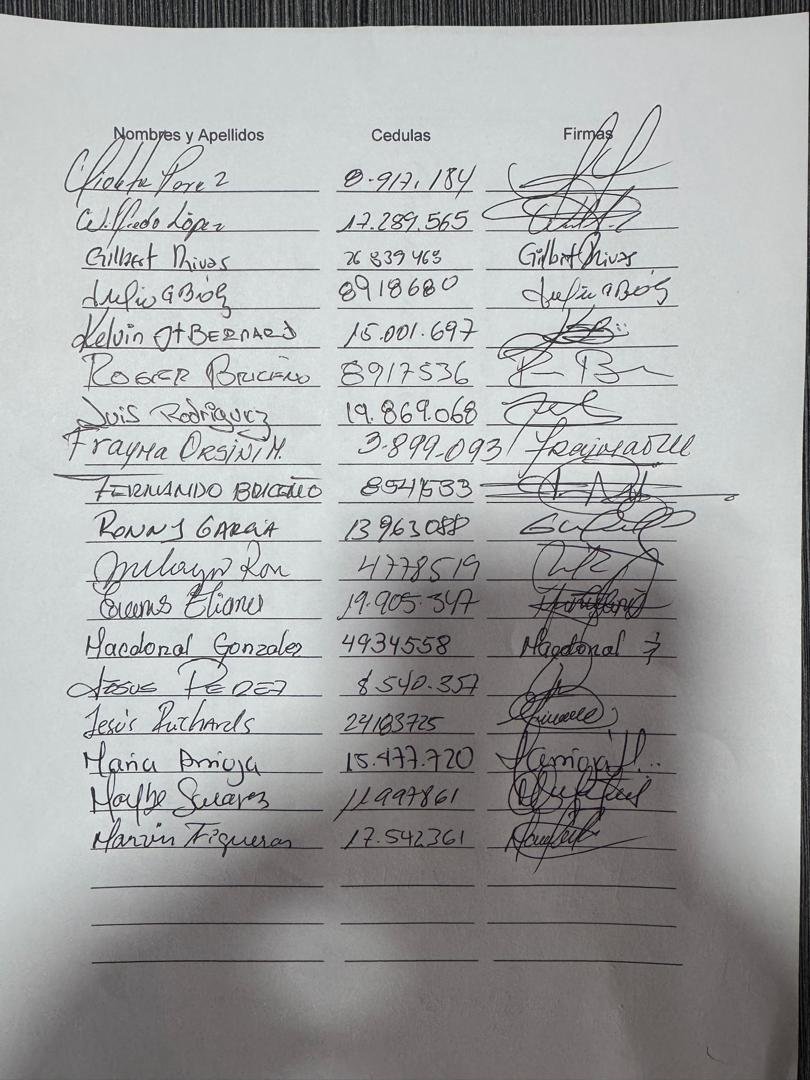 Nombres y Apellidos Cedulas Firmas
Violeta Perez 8.917.184
Wilfredo López 17.289.565
Gilbert Rivas 26 839 463 Gilbert Rivas
Julio 8918680 Julio
Kelvin BERNARD 15.001.697
ROGER BRICEÑO 8917536
Luis Rodriguez 19.869.068
Frayma ORSINI M. 3.899.093
FERNANDO BRICEÑO 8541533
RONNY GARCIA 13963088
Ron 4778519
19.905.347
Macdonal Gonzales 4934558 Macdonal
JESUS PEREZ 8.540.357
Jesús Richards 24183725
Maria Arrioja 15.477.720
Maybe Suarez 11997861
Marvin Figueras 17.542361